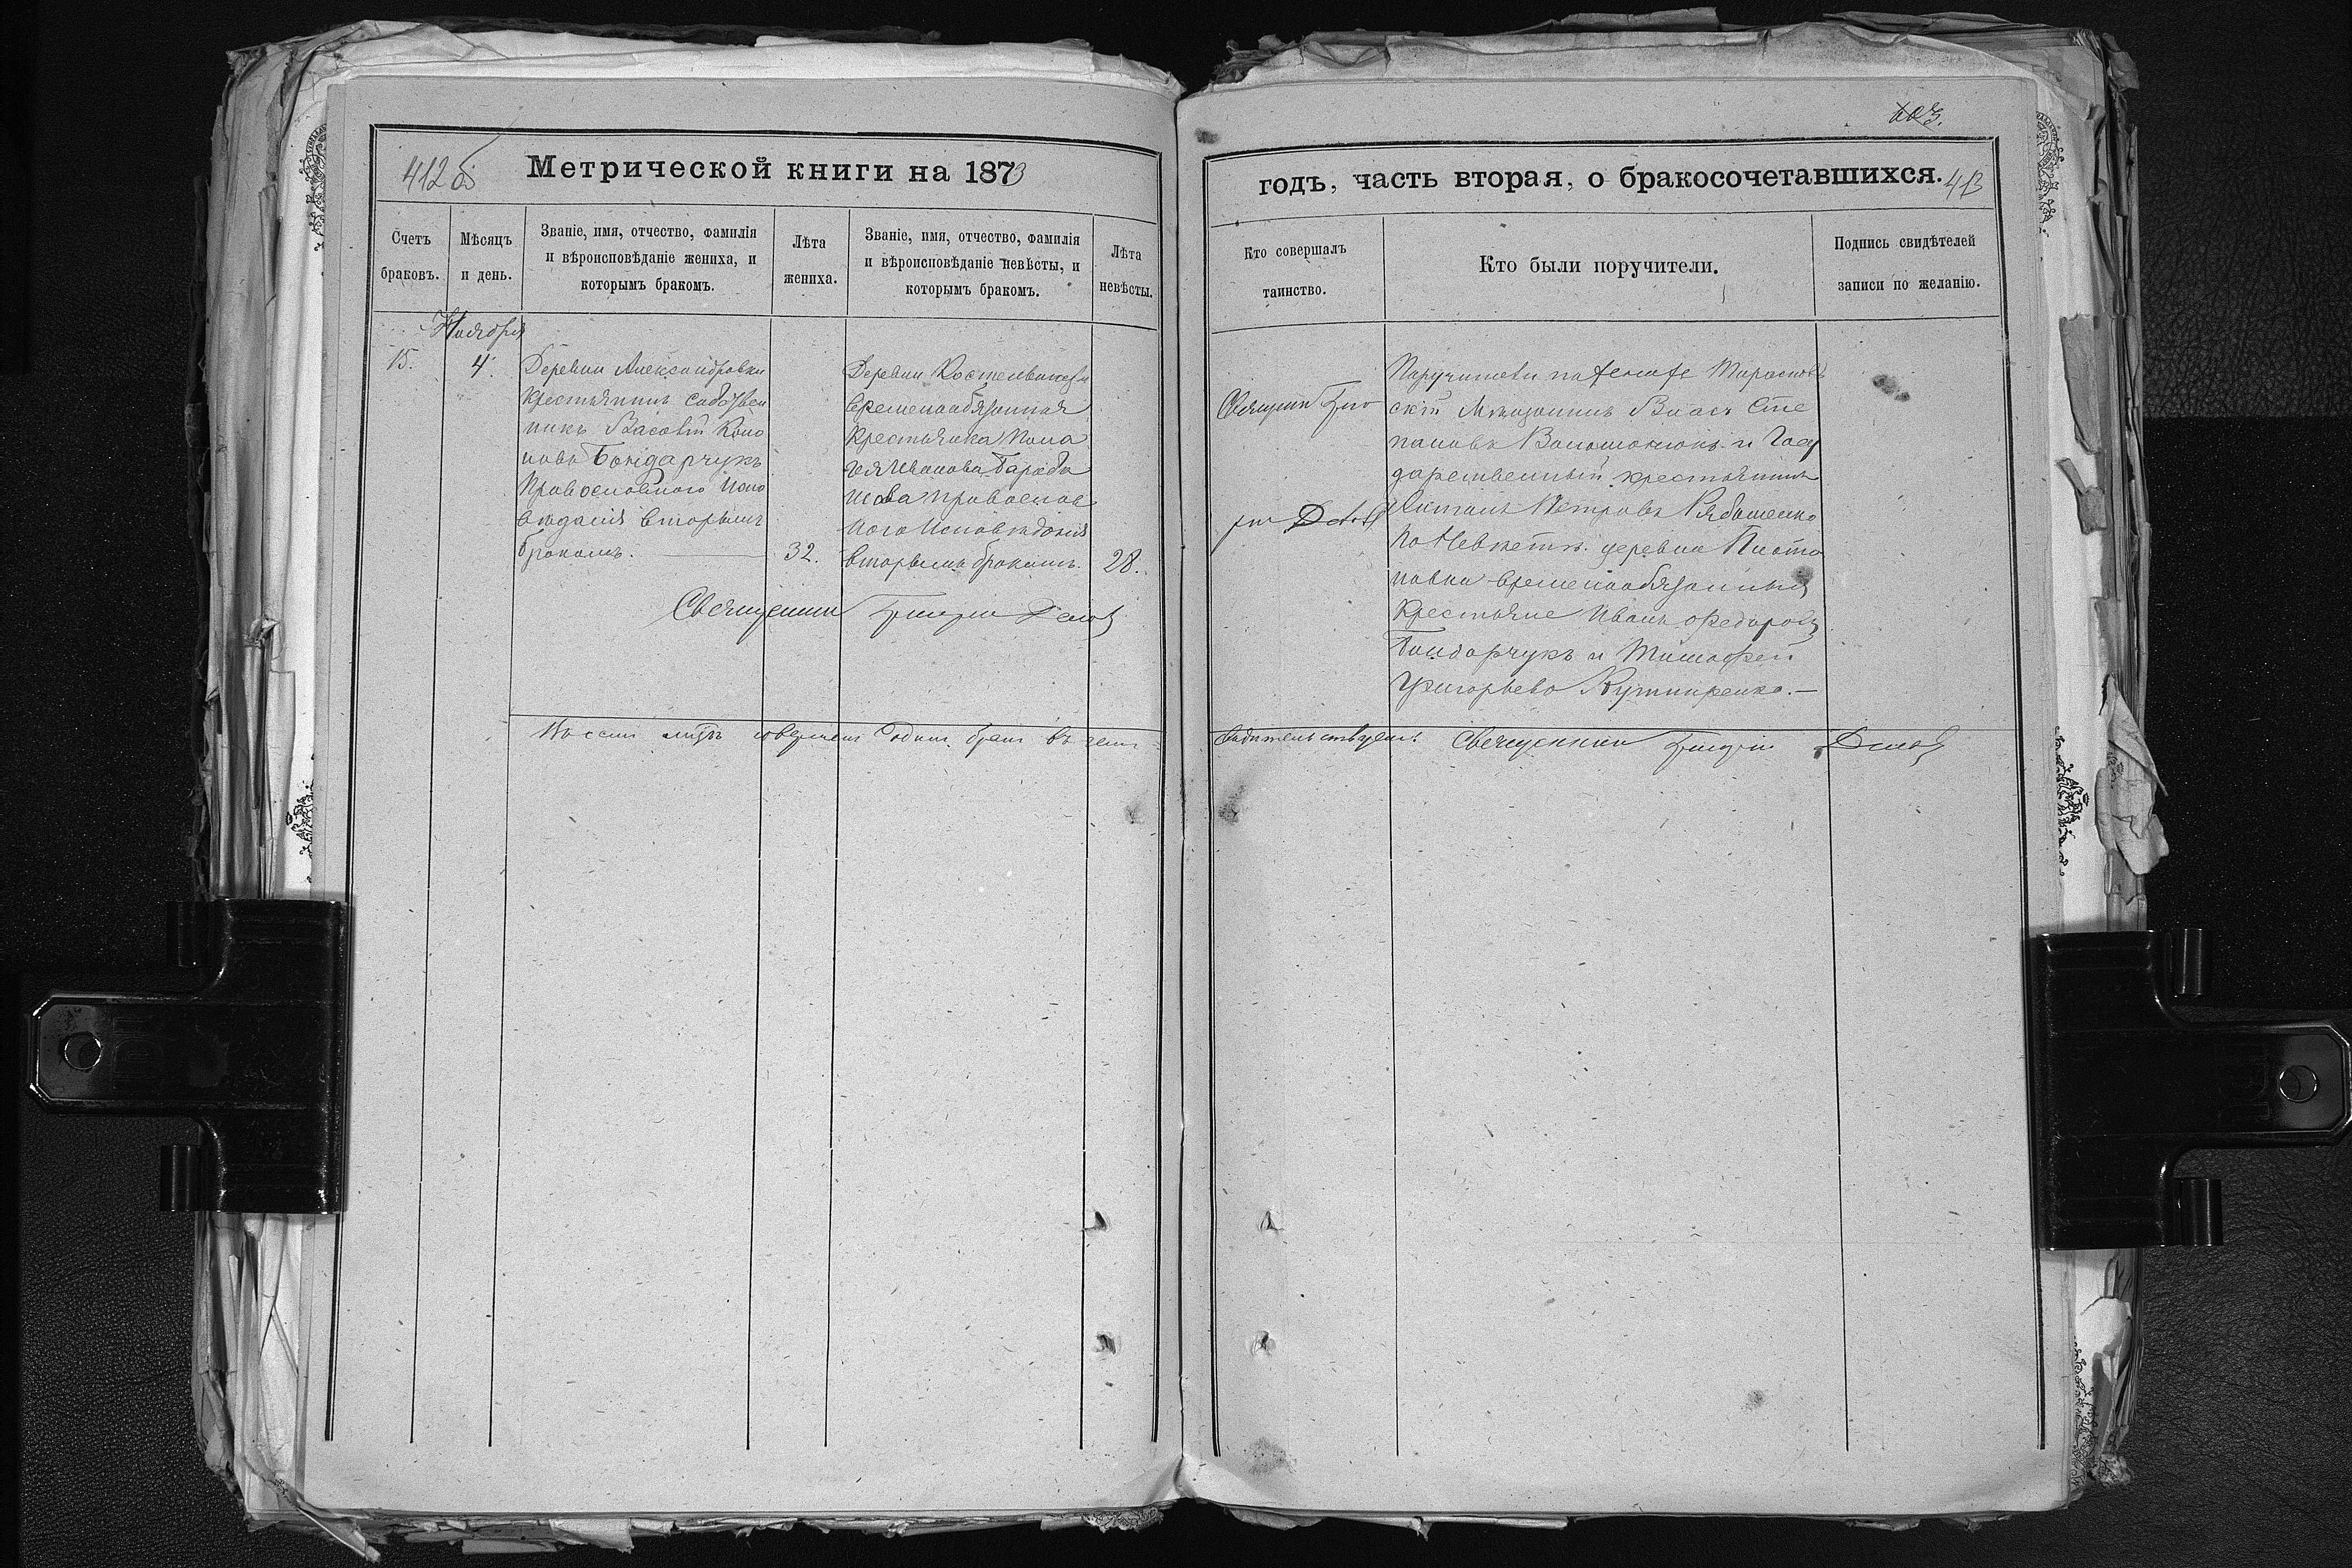 412 об
Метрической книги на 1873
Счетъ браковъ.
Мѣсяцъ и день.
Званіе, имя, отчество, фамилія
и вѣроисповѣданіе жениха, и
которымъ бракомъ.
Лѣта жениха.
Званіе, имя, отчество, фамилія
и вѣроисповѣданіе невѣсты, и
которымъ бракомъ.
Лѣта невѣсты.
Ноября
15.
4.
Деревни Александровки
крестьянинъ
Бондарчукъ
Православного Испо
вѣданія вторымъ
бракомъ.
32.
Деревни
временнообязанная
крестьянка Пела
гея Иванова
православ
ного Исповѣданія
вторымъ бракомъ.
28.
Священникъ
Въ семъ листѣ одинъ бракъ въ чемъ
403.
годъ, часть вторая, о бракосочетавшихся.
413
Кто совершалъ
таинство.
Кто были поручители.
Подпись свидѣтелей
записи по желанію.
Священникъ
Поручители по женихе
Мѣщанинъ Власъ Сте
пановъ и Госу
дарственный крестьянинъ
Петровъ
по Невѣстѣ деревни
временнообязанные
Крестьяне Иванъ Федоровъ
Бондарчукъ и Тимофей
Григорьевъ Кушниренко.
свидѣтельствуемъ Священникъ